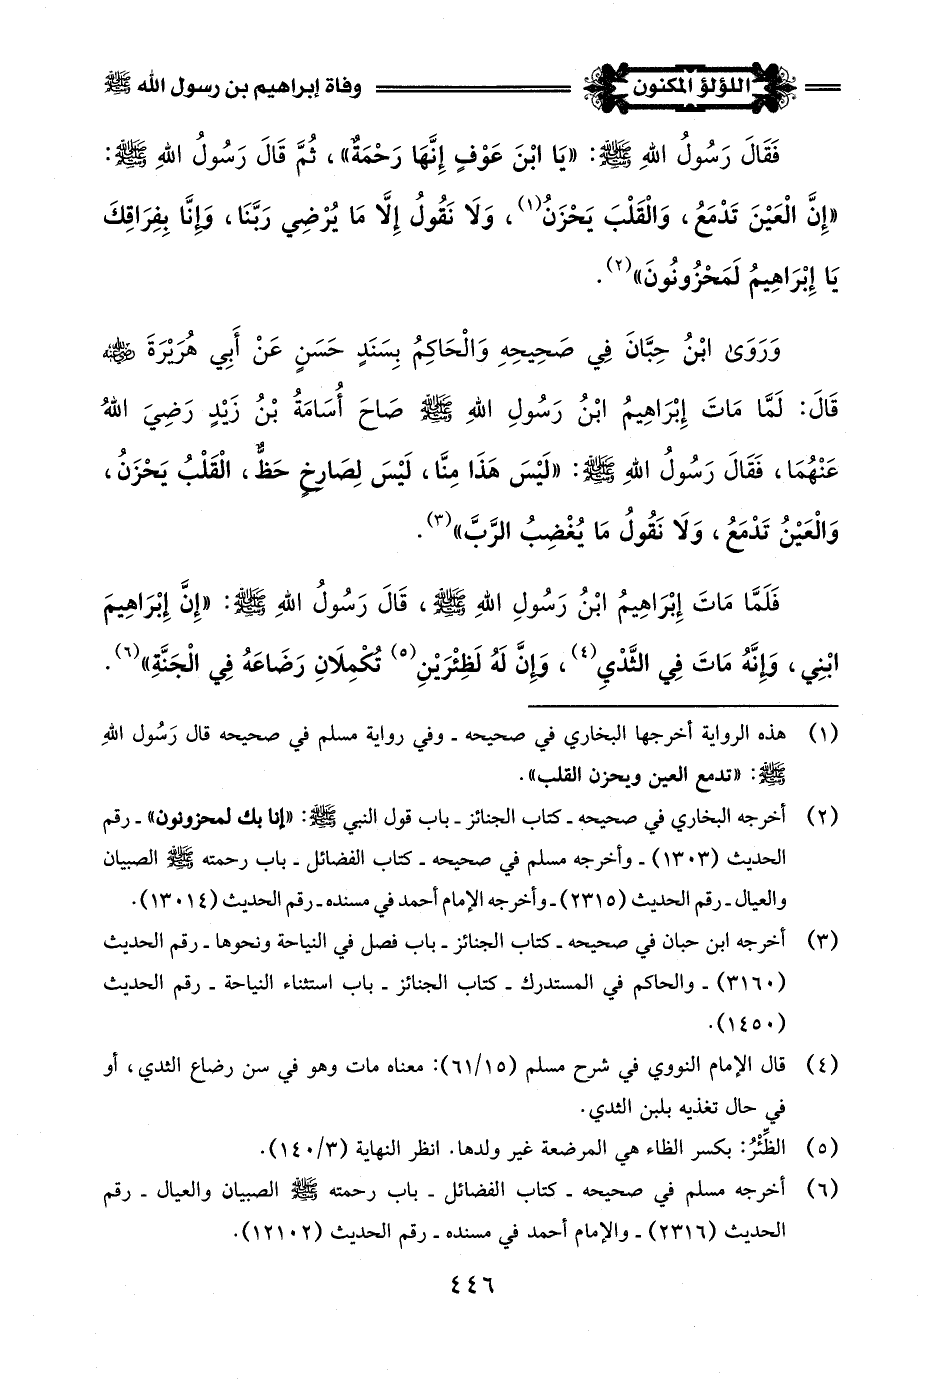 اللؤلؤ المكنون وفاة إبراهيم بن رسول الله ﷺ
فَقَالَ رَسُولُ اللهِ ﷺ: «يَا ابْنَ عَوْفٍ إِنَّهَا رَحْمَةٌ»، ثُمَّ قَالَ رَسُولُ اللهِ ﷺ:
«إِنَّ الْعَيْنَ تَدْمَعُ، وَالْقَلْبَ يَحْزَنُ(١)، وَلَا نَقُولُ إِلَّا مَا يُرْضِي رَبَّنَا، وَإِنَّا بِفِرَاقِكَ
يَا إِبْرَاهِيمُ لَمَحْزُونُونَ»(٢).
وَرَوَىٰ ابْنُ حِبَّانَ فِي صَحِيحِهِ وَالْحَاكِمُ بِسَنَدٍ حَسَنٍ عَنْ أَبِي هُرَيْرَةَ رضي الله عنه
قَالَ: لَمَّا مَاتَ إِبْرَاهِيمُ ابْنُ رَسُولِ اللهِ ﷺ صَاحَ أُسَامَةُ بْنُ زَيْدٍ رَضِيَ اللهُ
عَنْهُمَا، فَقَالَ رَسُولُ اللهِ ﷺ: «لَيْسَ هَذَا مِنَّا، لَيْسَ لِصَارِخٍ حَظٌّ، الْقَلْبُ يَحْزَنُ،
وَالْعَيْنُ تَدْمَعُ، وَلَا نَقُولُ مَا يُغْضِبُ الرَّبَّ»(٣).
فَلَمَّا مَاتَ إِبْرَاهِيمُ ابْنُ رَسُولِ اللهِ ﷺ، قَالَ رَسُولُ اللهِ ﷺ: «إِنَّ إِبْرَاهِيمَ
ابْنِي، وَإِنَّهُ مَاتَ فِي الثَّدْيِ(٤)، وَإِنَّ لَهُ لَظِئْرَيْنِ(٥) تُكْمِلَانِ رَضَاعَهُ فِي الْجَنَّةِ»(٦).
(١) هذه الرواية أخرجها البخاري في صحيحه ـ وفي رواية مسلم في صحيحه قال رَسُول اللهِ
ﷺ: «تدمع العين ويحزن القلب».
(٢) أخرجه البخاري في صحيحه ـ كتاب الجنائز ـ باب قول النبي ﷺ: «إنا بك لمحزونون» ـ رقم
الحديث (١٣٠٣) ـ وأخرجه مسلم في صحيحه ـ كتاب الفضائل ـ باب رحمته ﷺ الصبيان
والعيال ـ رقم الحديث (٢٣١٥) ـ وأخرجه الإمام أحمد في مسنده ـ رقم الحديث (١٣٠١٤).
(٣) أخرجه ابن حبان في صحيحه ـ كتاب الجنائز ـ باب فصل في النياحة ونحوها ـ رقم الحديث
(٣١٦٠) ـ والحاكم في المستدرك ـ كتاب الجنائز ـ باب استثناء النياحة ـ رقم الحديث
(١٤٥٠).
(٤) قال الإمام النووي في شرح مسلم (٦١/١٥): معناه مات وهو في سن رضاع الثدي، أو
في حال تغذيه بلبن الثدي.
(٥) الظِّئْرُ: بكسر الظاء هي المرضعة غير ولدها. انظر النهاية (١٤٠/٣).
(٦) أخرجه مسلم في صحيحه ـ كتاب الفضائل ـ باب رحمته ﷺ الصبيان والعيال ـ رقم
الحديث (٢٣١٦) ـ والإمام أحمد في مسنده ـ رقم الحديث (١٢١٠٢).
٤٤٦